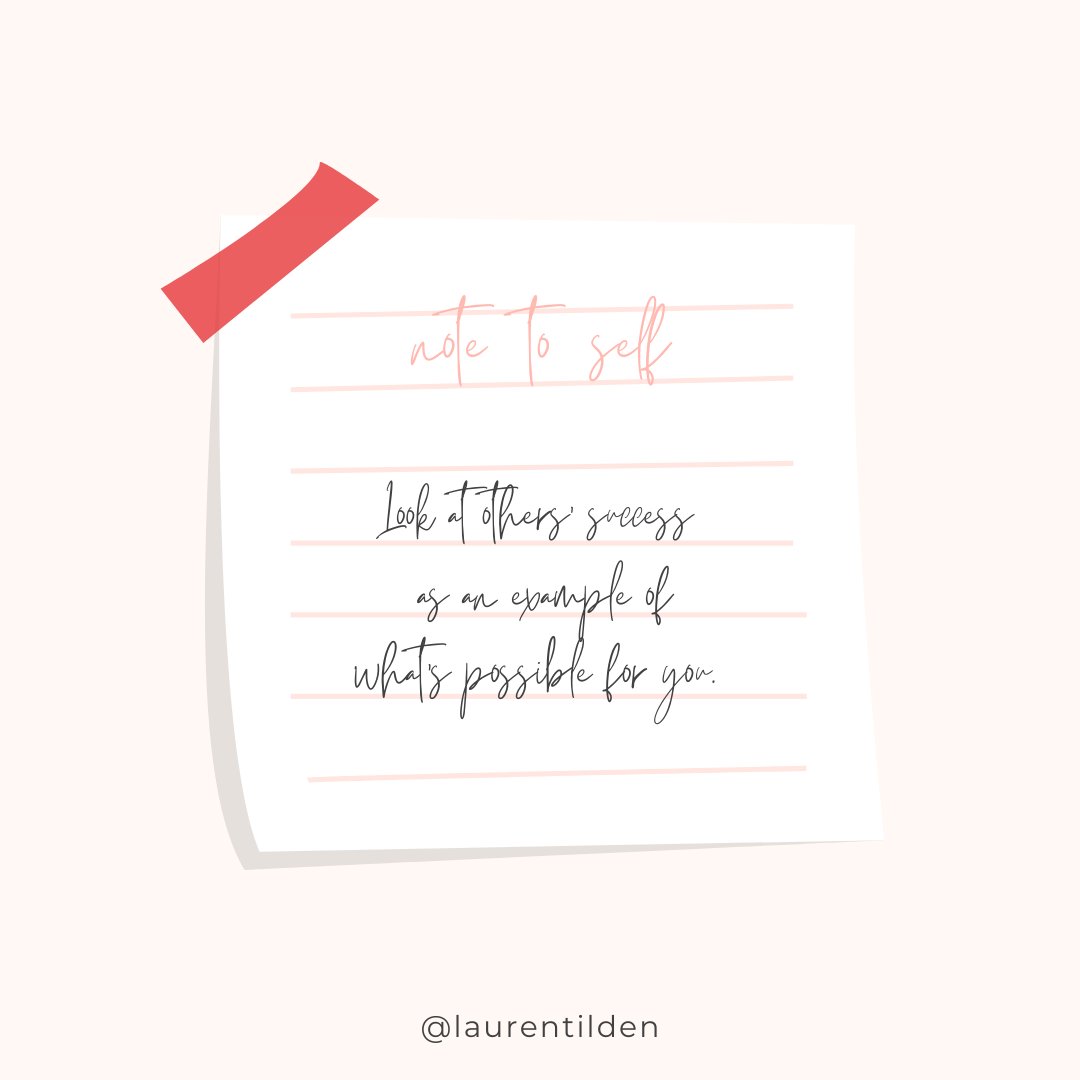 note to self
Look at others' success
as an example of
what's possible for you.
@laurentilden